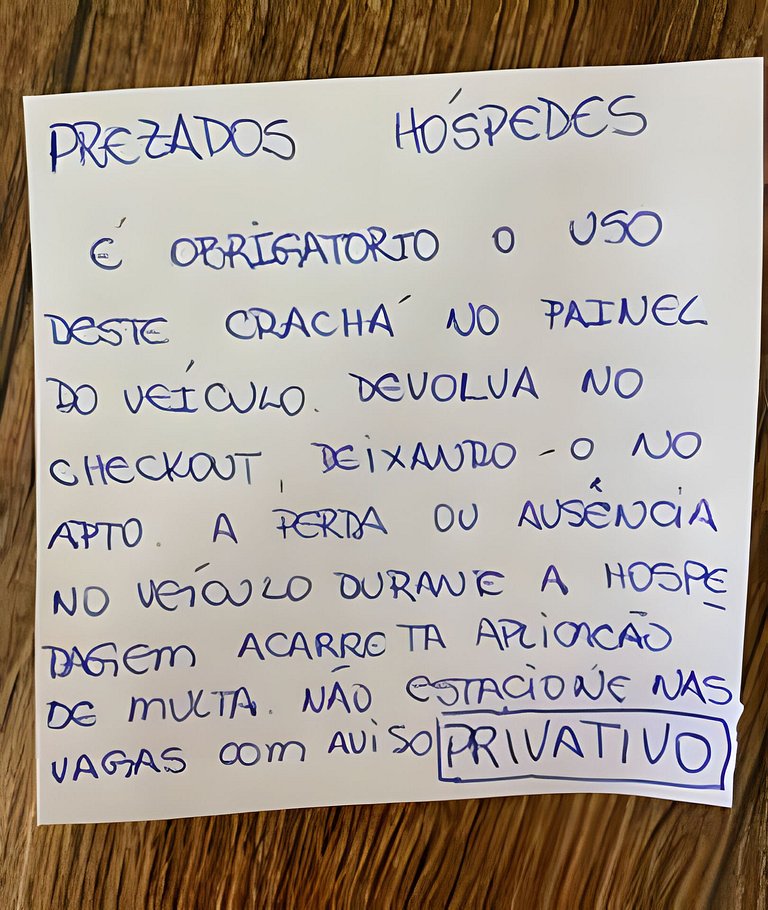 PREZADOS HÓSPEDES
É OBRIGATORIO O USO
DESTE CRACHÁ NO PAINEL
DO VEÍCULO. DEVOLVA NO
CHECKOUT, DEIXANDO-O NO
APTO. A PERDA OU AUSÊNCIA
NO VEÍCULO DURANTE A HOSPE
DAGEM ACARRETA APLICACÃO
DE MULTA. NÃO ESTACIONE NAS
VAGAS COM AVISO PRIVATIVO